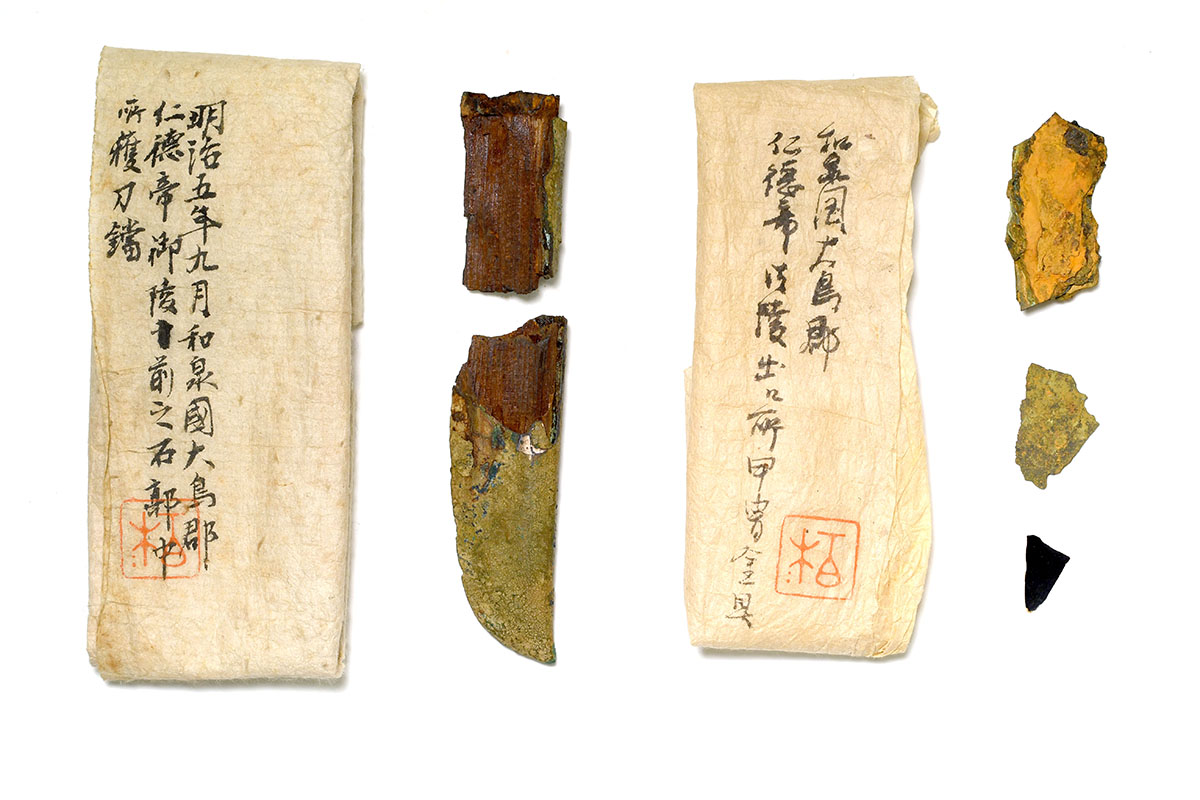 明治五年九月和泉國大鳥郡
仁德帝御陵前之石郭中
所獲刀鐺
柏
和泉国大鳥郡
仁德帝御陵出ル所甲冑金具
柏